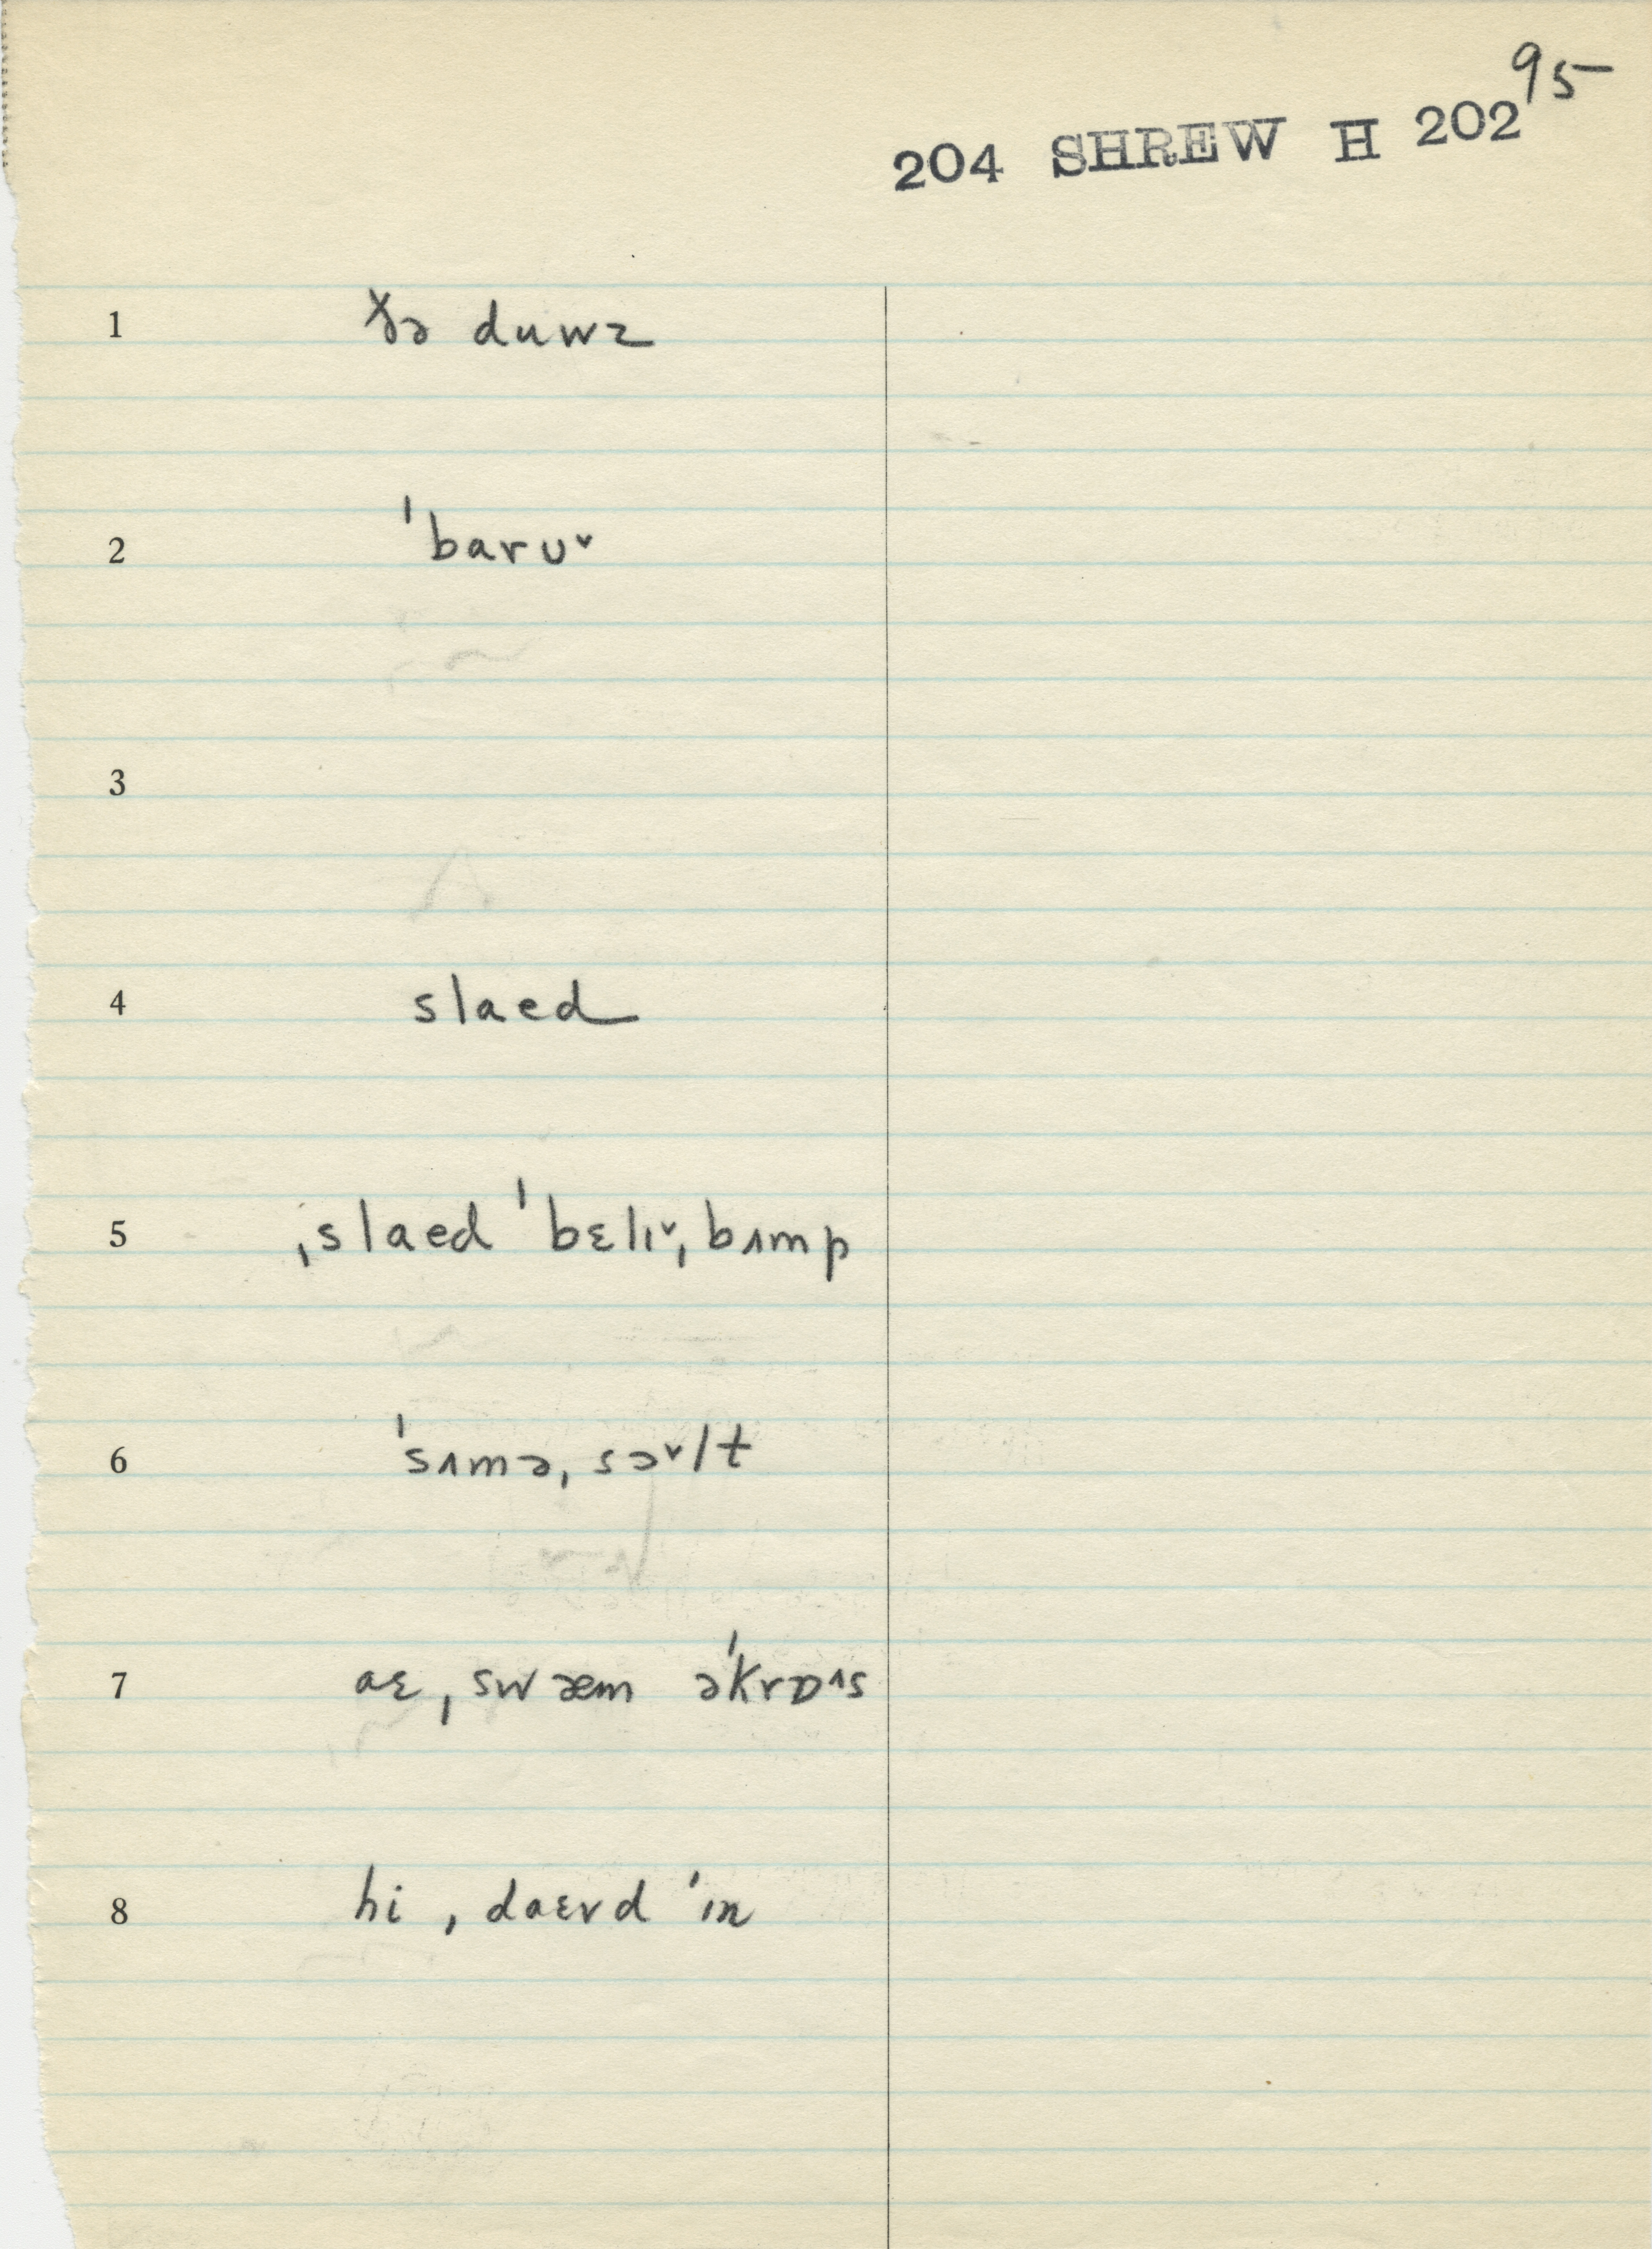 95
204 SHREW H 202
1 ðə duwz
2 ˈbarʊ˅
3
4 slaed
5 ˌslaed ˈbɛlɪ˅ˌbʌmp
6 ˈsʌməˌsə˅lt
7 aɛ ˌswæm əˈkrɒ^s
8 hi ˌdaɛrd ˈɪn